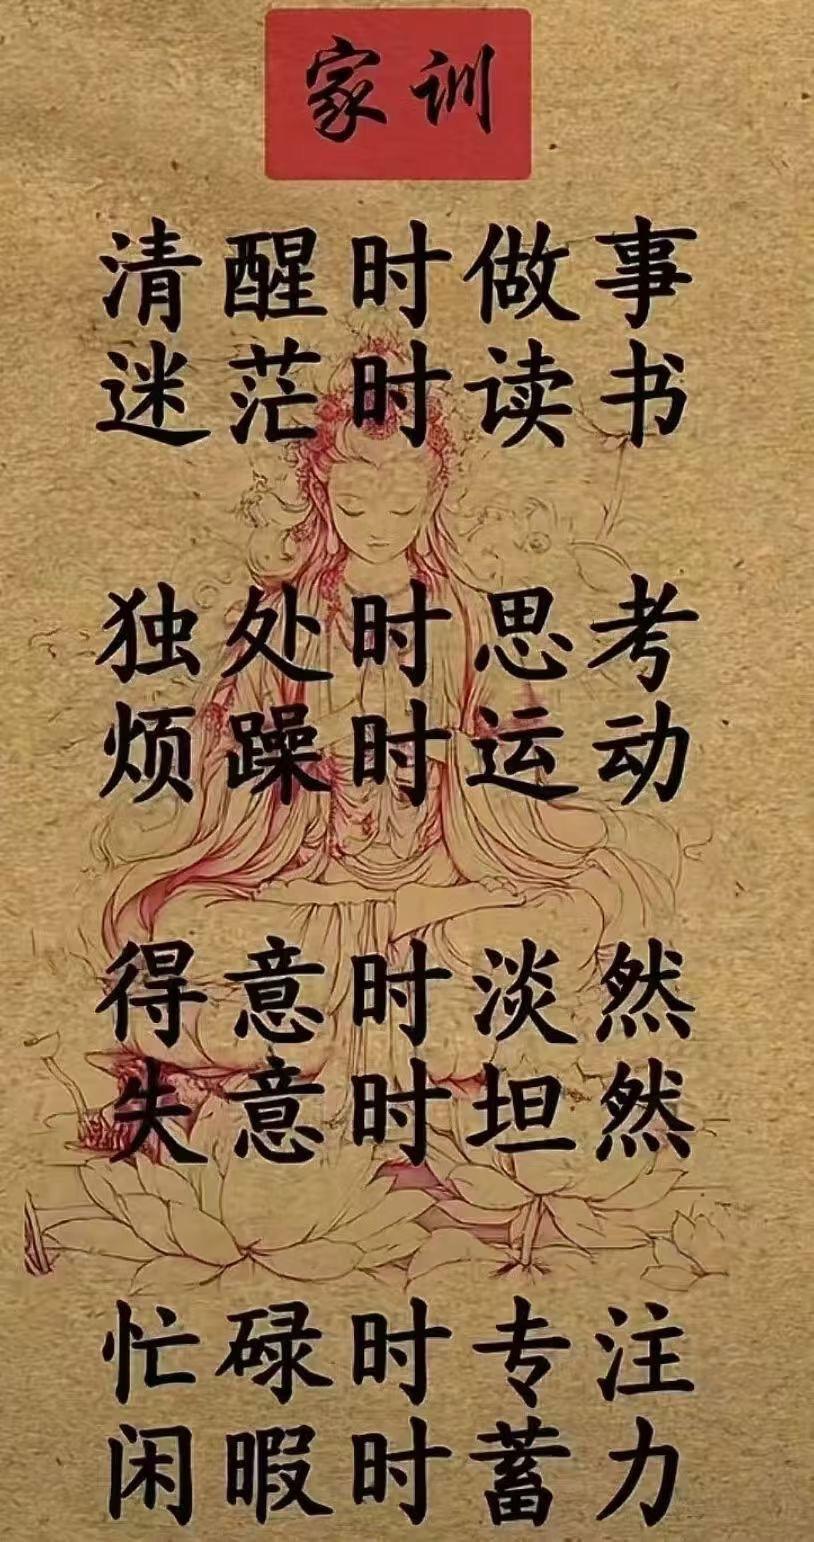 家训
清醒时做事
迷茫时读书
独处时思考
烦躁时运动
得意时淡然
失意时坦然
忙碌时专注
闲暇时蓄力